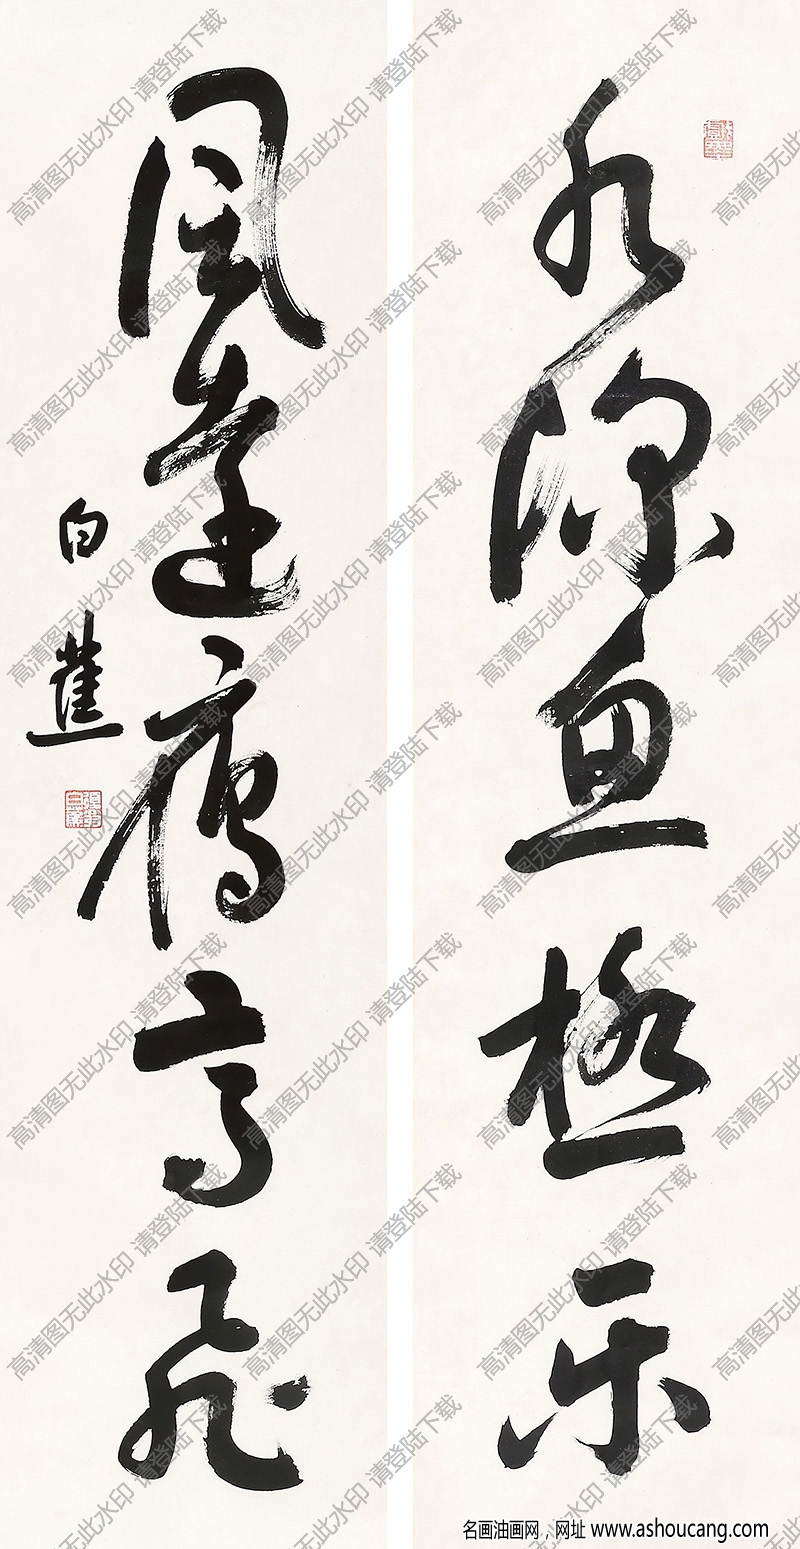 水深魚極樂
風鷹高飛
白蕉
高清图无此水印 请登陆下载
名画油画网，网址 www.ashoucang.com